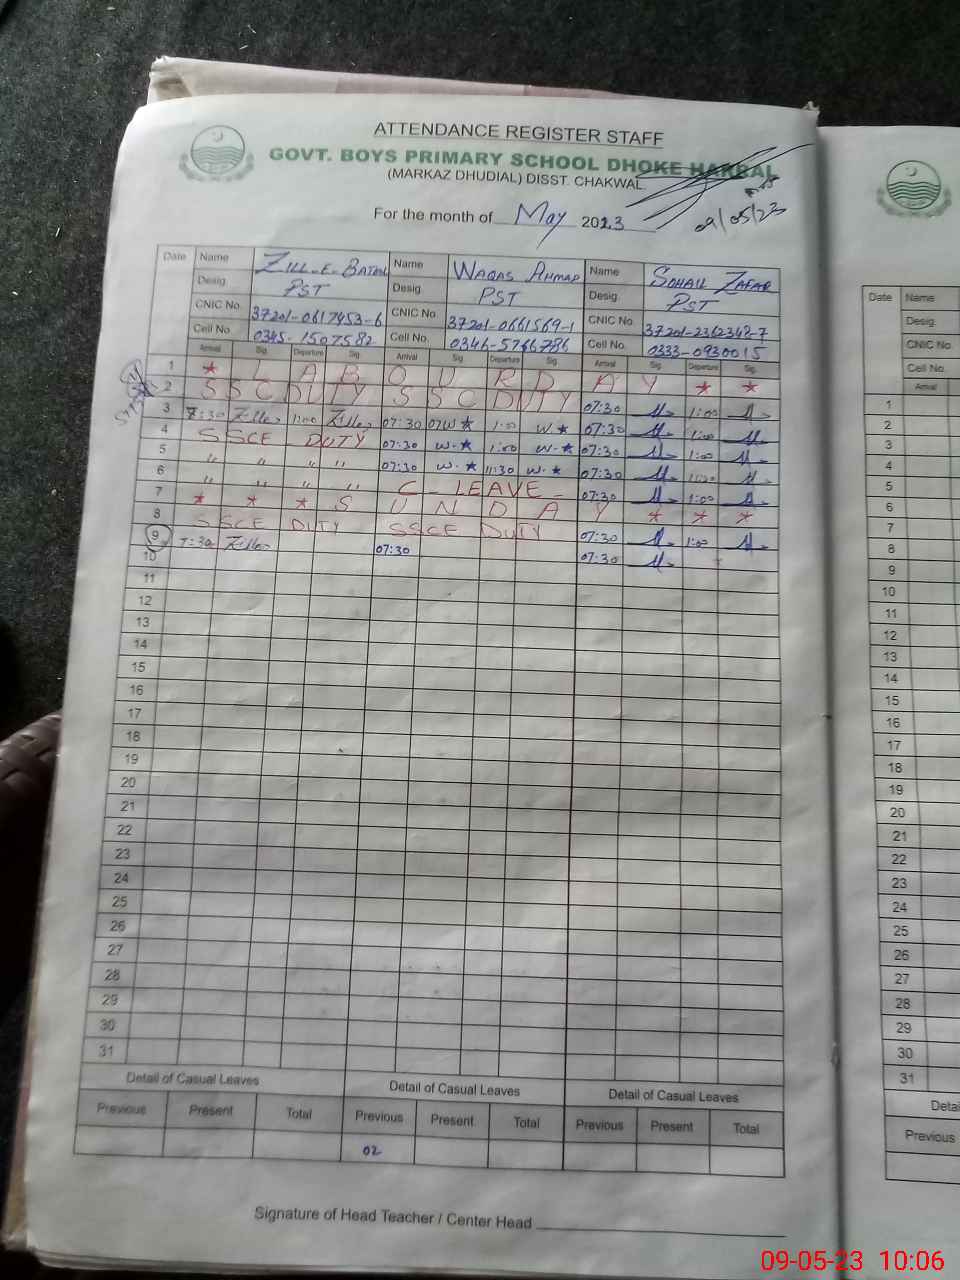 ATTENDANCE REGISTER STAFF
GOVT. BOYS PRIMARY SCHOOL DHOKE HAKBAL
(MARKAZ DHUDIAL) DISST. CHAKWAL
For the month of May 2023
09/05/23
Date Name ZILL-E-BATOOL Name WAQAS AHMAD Name SOHAIL ZAFAR
Desig. PST Desig. PST Desig. PST
CNIC No. 37201-0617453-6 CNIC No. 37201-0661569-1 CNIC No. 37201-2362348-7
Cell No. 0345-1507582 Cell No. 0346-5766786 Cell No. 0333-0930015
Arrival Sig. Departure Sig. Arrival Sig. Departure Sig. Arrival Sig. Departure Sig.
1 * L A B O U R D A Y * *
2 SSC DUTY SSC DUTY 07:30 1:00
3 7:30 1:00 07:30 W * 1:00 W.* 07:30 1:00
4 SSCE DUTY 07:30 W.* 1:00 W.* 07:30 1:00
5 " " " " 07:30 W.* 11:30 W.* 07:30 11:30
6 " " " " C-LEAVE- 07:30 1:00
7 * * * S U N D A Y * * *
8 SSCE DUTY SSCE DUTY 07:30 1:00
9 7:30 07:30 07:30
10
11
12
13
14
15
16
17
18
19
20
21
22
23
24
25
26
27
28
29
30
31
Detail of Casual Leaves Detail of Casual Leaves Detail of Casual Leaves
Previous Present Total Previous Present Total Previous Present Total
02
Signature of Head Teacher / Center Head
Date Name
Desig.
CNIC No.
Cell No.
Arrival
1
2
3
4
5
6
7
8
9
10
11
12
13
14
15
16
17
18
19
20
21
22
23
24
25
26
27
28
29
30
31
Previous
09-05-23 10:06